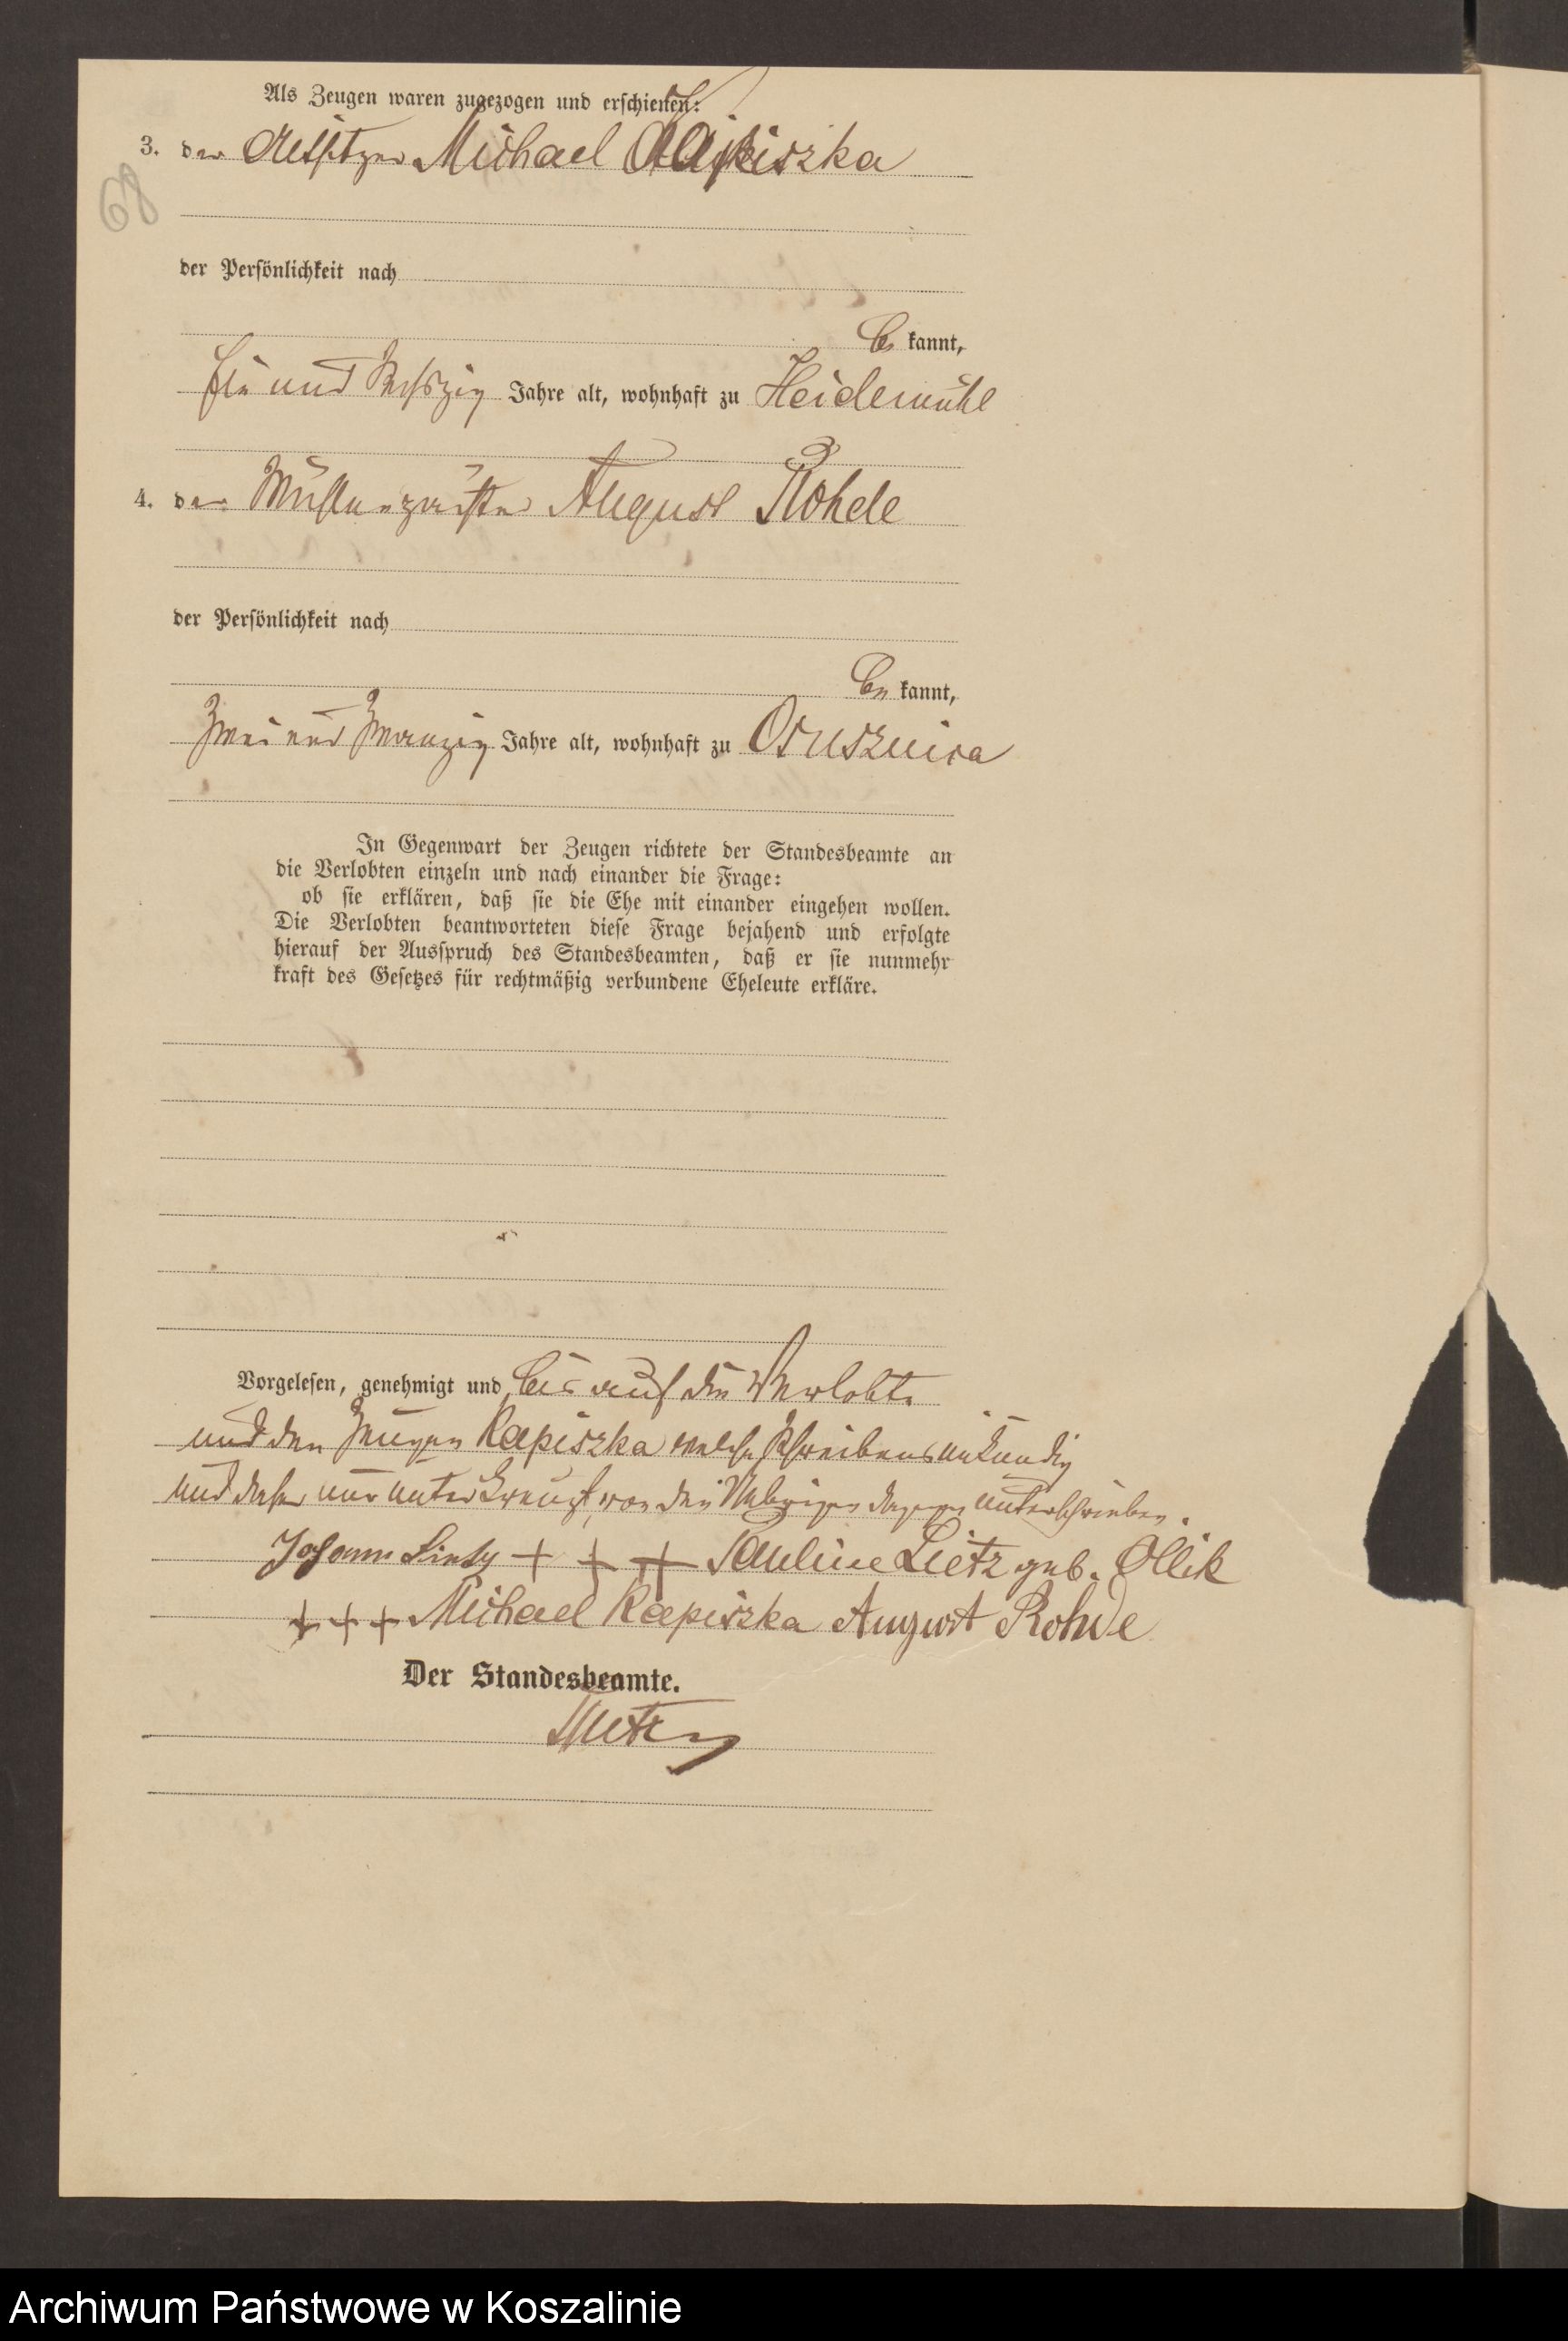 Als Zeugen waren zugezogen und erschienen:
3. der Besitzer Michael
68
der Persönlichkeit nach
be kannt,
ein und sechszig Jahre alt, wohnhaft zu Heidemühl
4. der August Rohde
der Persönlichkeit nach
be kannt,
zwei und zwanzig Jahre alt, wohnhaft zu Osusznica
In Gegenwart der Zeugen richtete der Standesbeamte an
die Verlobten einzeln und nach einander die Frage:
ob sie erklären, daß sie die Ehe mit einander eingehen wollen.
Die Verlobten beantworteten diese Frage bejahend und erfolgte
hierauf der Ausspruch des Standesbeamten, daß er sie nunmehr
kraft des Gesetzes für rechtmäßig verbundene Eheleute erkläre.
Vorgelesen, genehmigt und bis auf die Verlobte
und den Zeugen Kapiszka welche Schreibensunkundig
und daher nur unterkreuzt, von den Uebrigen dagegen unterschrieben.
Johann + + + Pauline Lietz geb. Ollik
+ + + Michael Kapiszka August Rohde
Der Standesbeamte.
Archiwum Państwowe w Koszalinie